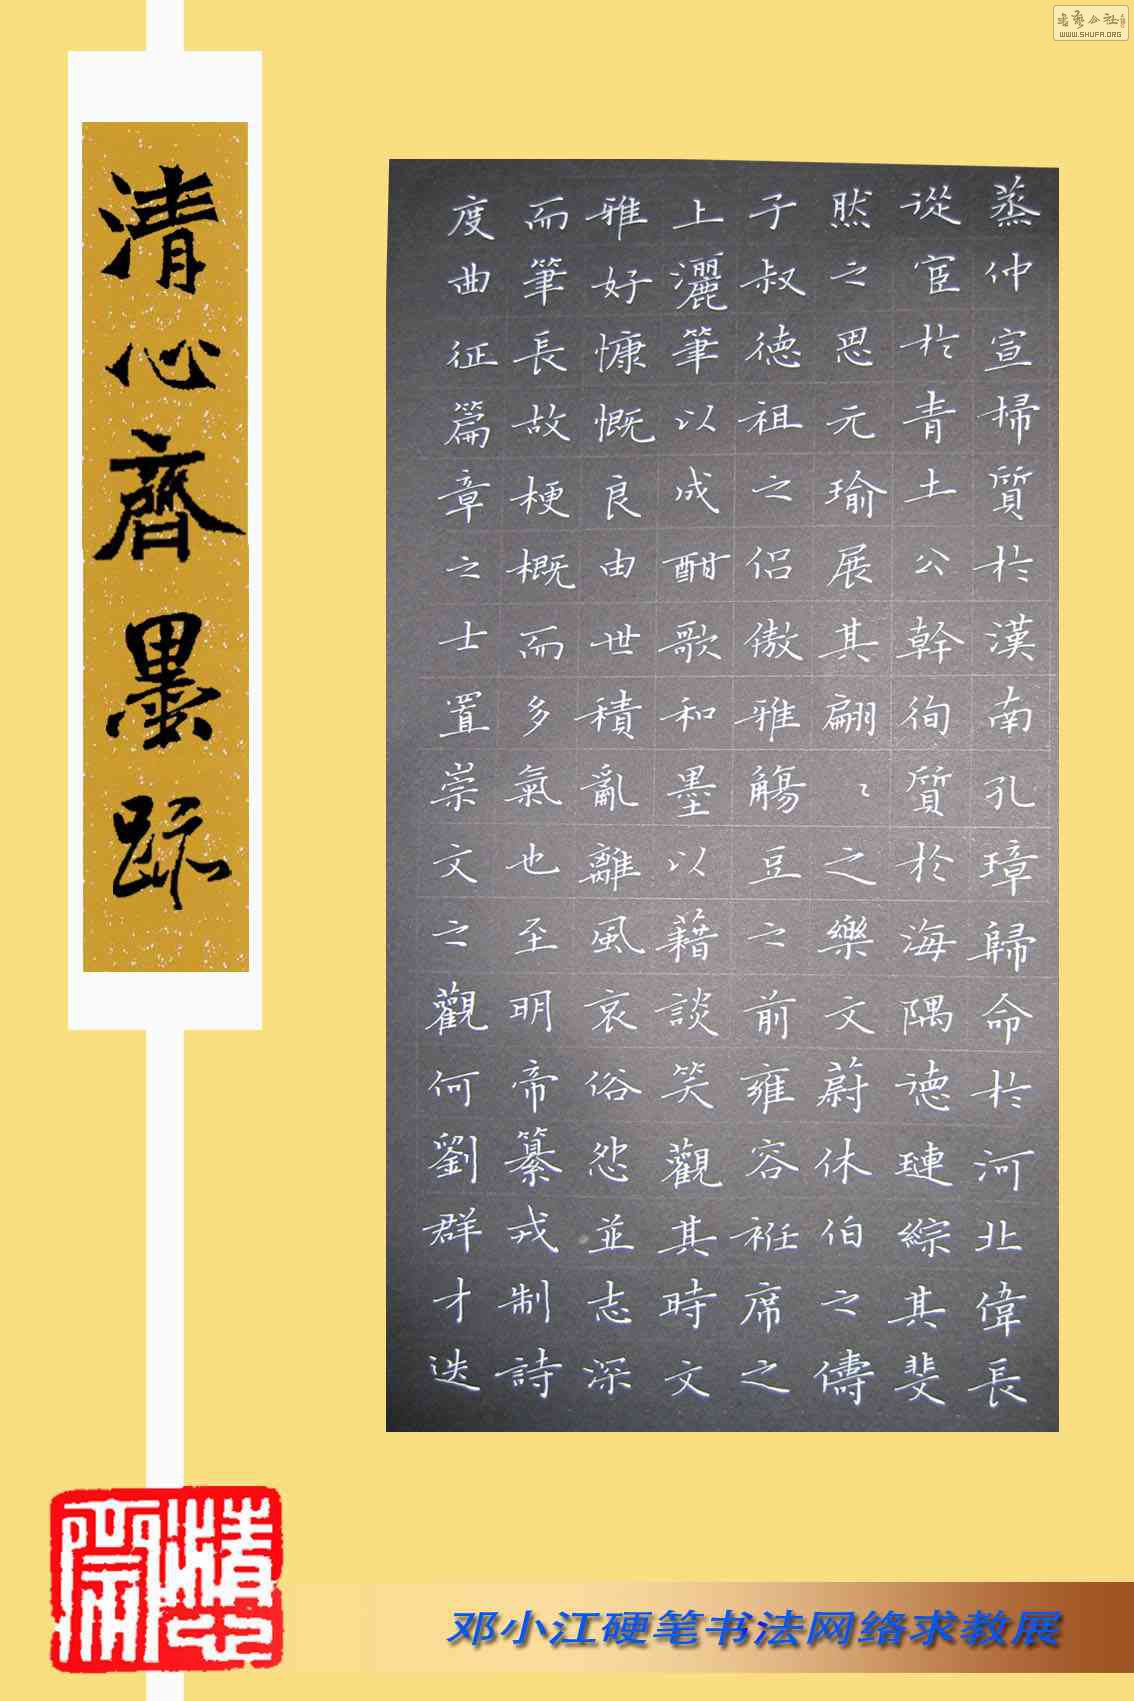 书艺公社
WWW.SHUFA.ORG
清心齋墨跡
蒸仲宣掃質於漢南孔璋歸命於河北偉長
從宦於青土公幹徇質於海隅德璉綜其斐
然之思元瑜展其翩〻之樂文蔚休伯之儔
子叔德祖之侣傲雅觴豆之前雍容衽席之
上灑筆以成酣歌和墨以藉談笑觀其時文
雅好慷慨良由世積亂離風哀俗怨並志深
而筆長故梗概而多氣也至明帝纂戎制詩
度曲征篇章之士置崇文之觀何劉群才迭
清心齋
邓小江硬笔书法网络求教展